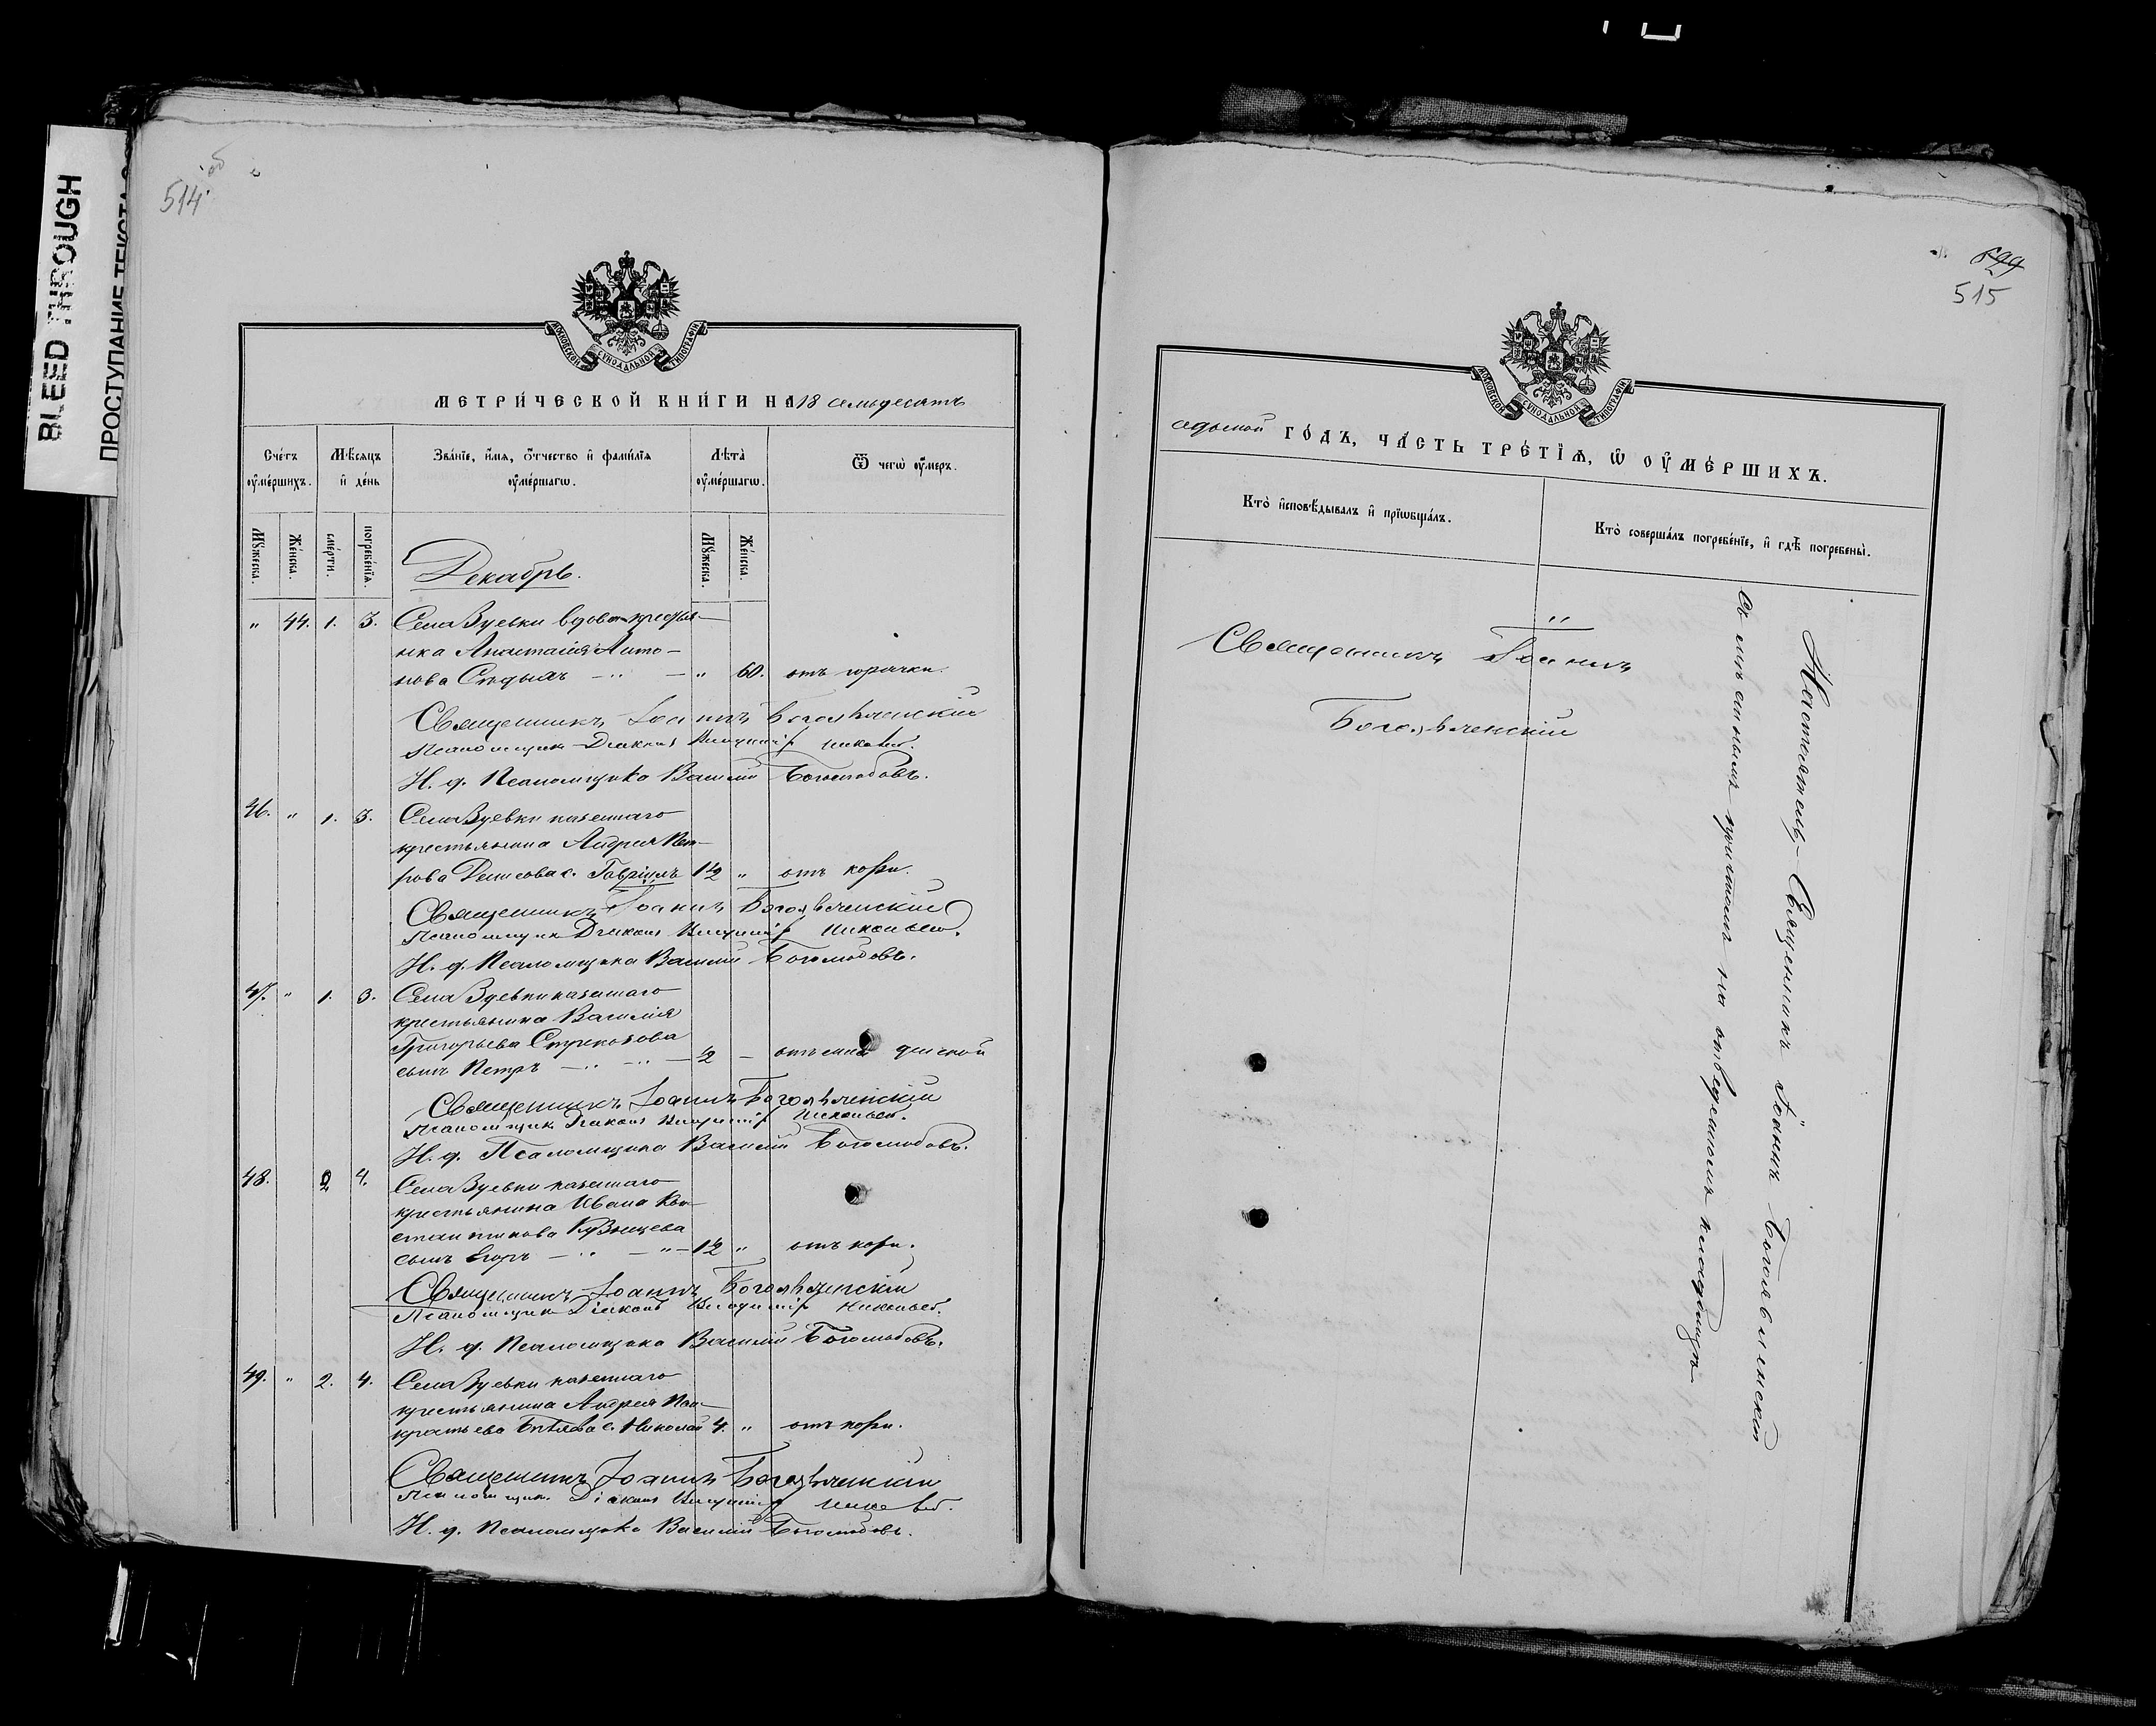 BLEED THROUGH
ПРОСТУПАНИЕ ТЕКСТА
об
514.
МОСКОВСКОЙ СУНОДАЛЬНОЙ ТИПОГРАФІИ
МЕТРИ́ЧЕСКОЙ КНИ́ГИ НА 18 семьдесятъ
Сче́тъ оу҆ме́ршихъ.
Мѣ́сяцъ и҆ де́нь
Зва́нїе, и҆́мя, ѻ҆́тчество и҆ фами́лїя оу҆ме́ршагѡ.
Лѣта̀ оу҆ме́ршагѡ.
Ѿ чегѡ̀ оу҆́меръ.
Мꙋ́жеска.
Же́нска.
сме́рти.
погребе́нїя.
Мꙋ́жеска.
Же́нска.
Декабрь.
" 44. 1. 3. Села Зуевки вдова крестья-
нка Анастасія Анто-
нова Сѣдыхъ - " - " 60. отъ горячки.
Священникъ Іоаннъ Богоявленскій
Псаломщикъ Діаконъ Владиміръ
И. д. Псаломщика Василий Боголюбовъ.
46. " 1. 3. Села Зуевки казеннаго
крестьянина Андрея Пет-
рова Денисова с. Гавріилъ 1½ " отъ кори.
Священникъ Іоаннъ Богоявленскій
Псаломщикъ Діаконъ Владиміръ
И. д. Псаломщика Василий Боголюбовъ.
47. " 1. 3. Села Зуевки казеннаго
крестьянина Василія
Григорьева Стрекозова
сынъ Петръ - " - " - ½ - отъ
Священникъ Іоаннъ Богоявленскій
Псаломщикъ Діаконъ Владиміръ
И. д. Псаломщика Василий Боголюбовъ.
48. 2 4. Села Зуевки казеннаго
крестьянина Ивана Кон-
стантинова Кузнецева
сынъ Егоръ - " - " - 1½ " отъ кори.
Священникъ Іоаннъ Богоявленскій
Псаломщикъ Діаконъ Владиміръ
И. д. Псаломщика Василий Боголюбовъ.
49. " 2. 4. Села Зуевки казеннаго
крестьянина Андрея Пан-
кратьева Бѣляева с. Николай 4. " отъ кори.
Священникъ Іоаннъ Богоявленскій
Псаломщикъ Діаконъ Владиміръ
И. д. Псаломщика Василий Боголюбовъ.
515
МОСКОВСКОЙ СУНОДАЛЬНОЙ ТИПОГРАФІИ
седьмой ГО́ДЪ, ЧА́СТЬ ТРЕ́ТЇЯ, Ѡ҆ ОУ҆МЕ́РШИХЪ.
Кто̀ и҆сповѣ́дывалъ и҆ прїѡбща́лъ.
Кто̀ соверша́лъ погребе́нїе, и҆ гдѣ̀ погребены̀.
Священникъ Іоаннъ
Богоявленскій
Настоятель-Священникъ Іоаннъ Богоявленскій
Съ симъ причтомъ на отведенномъ кладбищѣ